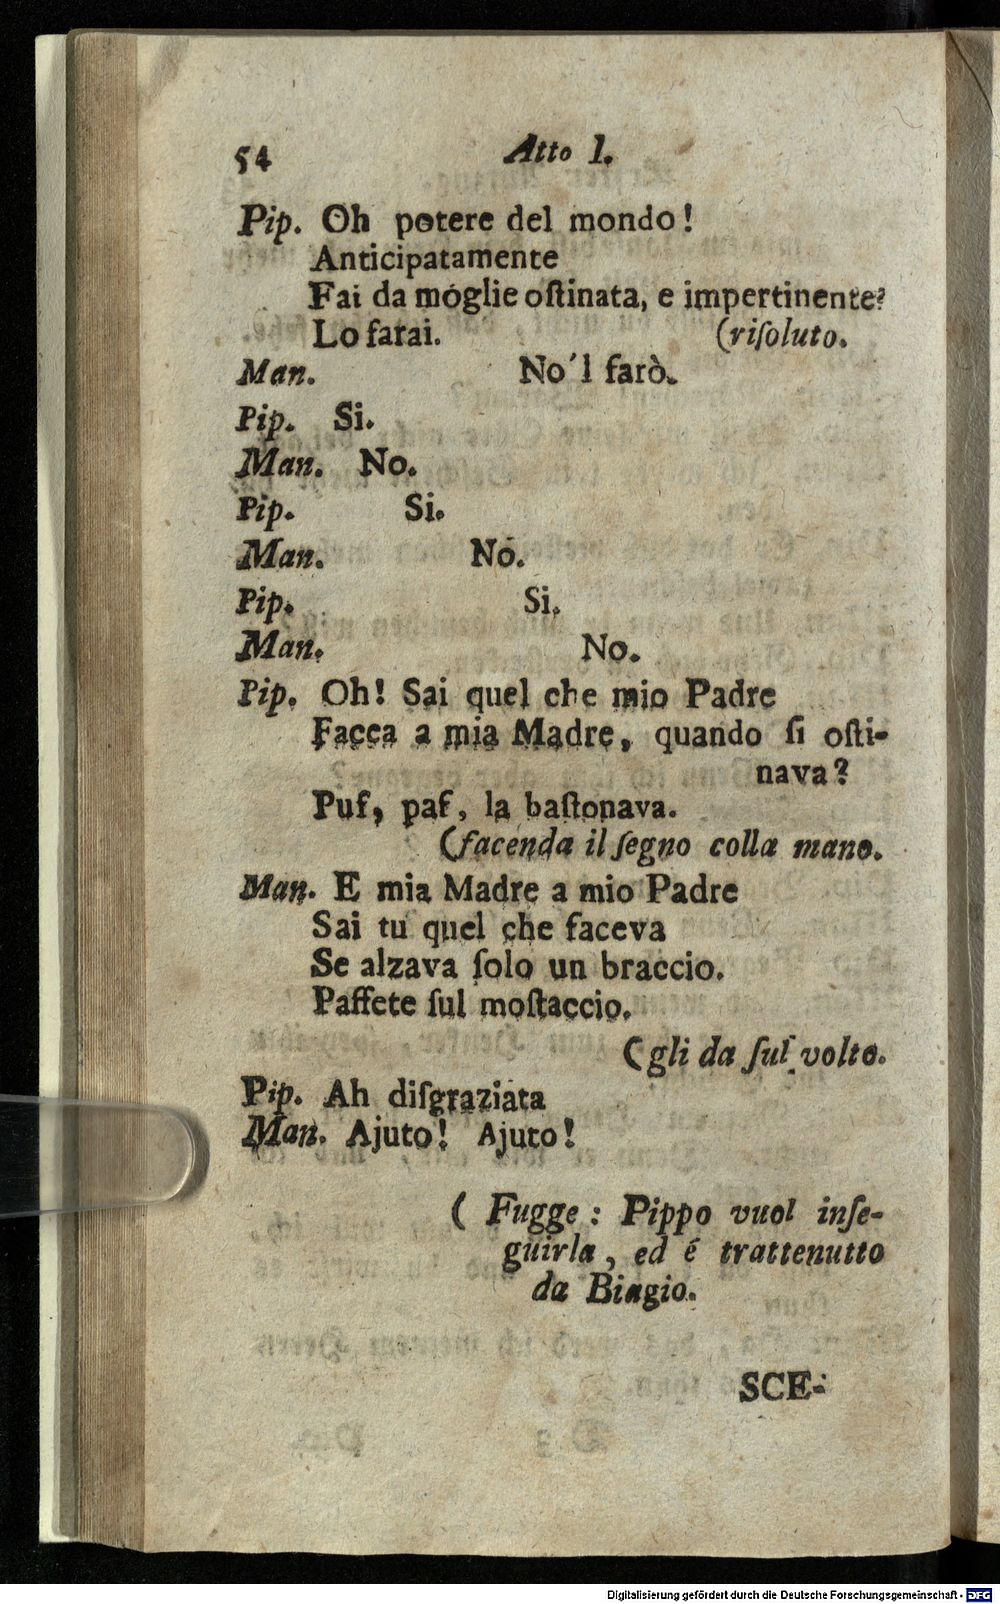 54 Atto I.
Pip. Oh potere del mondo!
Anticipatamente
Fai da móglie oſtinata, e impertinente?
Lo farai. (riſoluto.
Man. No'l farò.
Pip. Si.
Man. No.
Pip. Si.
Man. No.
Pip. Si.
Man. No.
Pip. Oh! Sai quel che mio Padre
Facea a mia Madre, quando ſi oſti-
nava?
Puf, paf, la baſtonava.
(facenda il ſegno colla mano.
Man. E mia Madre a mio Padre
Sai tu quel che faceva
Se alzava ſolo un braccio.
Paffete ſul moſtaccio.
(gli da ſul volto.
Pip. Ah diſgraziata
Man. Ajuto! Ajuto!
( Fugge: Pippo vuol inſe-
guirla, ed é trattenutto
da Biagio.
SCE-
Digitalisierung gefördert durch die Deutsche Forschungsgemeinschaft - DFG